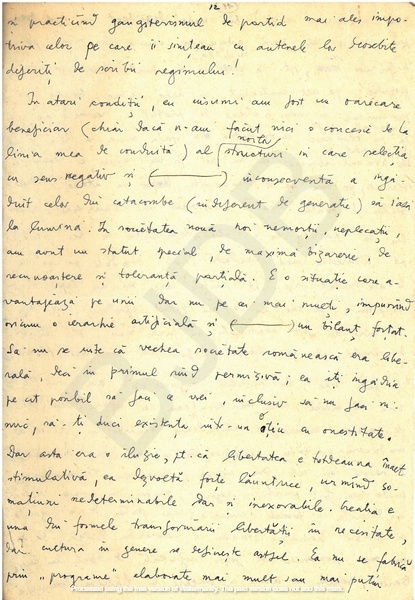 12
și practicînd gangsterismul de partid mai ales impo-
triva celor pe care îi simțeau cu antenele lor deosebite
diferiți de scribii regimului!
În atari condiții, eu însumi am fost un oarecare
beneficiar (chiar dacă n-am făcut nici o concesie de la
linia mea de conduită) al structurii în care selecția
cu sens negativ și inconsecventă a îngă-
duit celor din catacombe (indiferent de generație) să iasă
la lumină. În societatea nouă noi nemorții, neplecații,
am avut un statut special, de maximă bizarerie, de
recunoaștere și toleranță parțială. E o situație care a-
vantajează pe unii dar nu pe cei mai mulți, impunînd
oricum o ierarhie artificială și un bilanț forțat.
Să nu se uite că vechea societate românească era libe-
rală, deci în primul rînd permisivă; ea îți îngăduia
pe cît posibil să faci ce vrei, inclusiv să nu faci ni-
mic, să-ți duci existența într-un oțiu cu onestitate.
Dar asta era o iluzie, pt. că libertatea e totdeauna înget
stimulativă, ea dezvoltă forțe lăuntrice, urmînd so-
mațiuni nedeterminabile dar și inexorabile. Creația e
una din formele transformării libertății în necesitate,
dar cultura în genere se definește astfel. Ea nu se fabrică
prin "programe" elaborate mai mult sau mai puțin